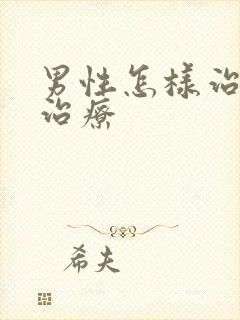 男性怎様治
治療
希夫